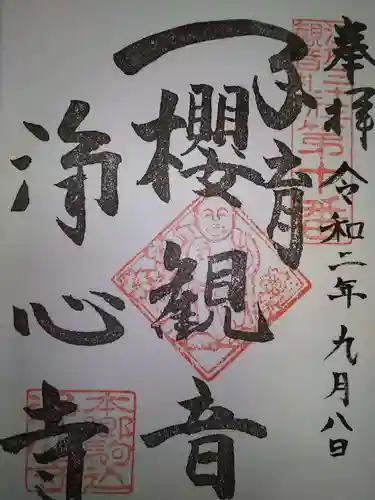 奉拝
令和二年九月八日
子育
櫻観音
浄心寺
第十番
本郷駒込